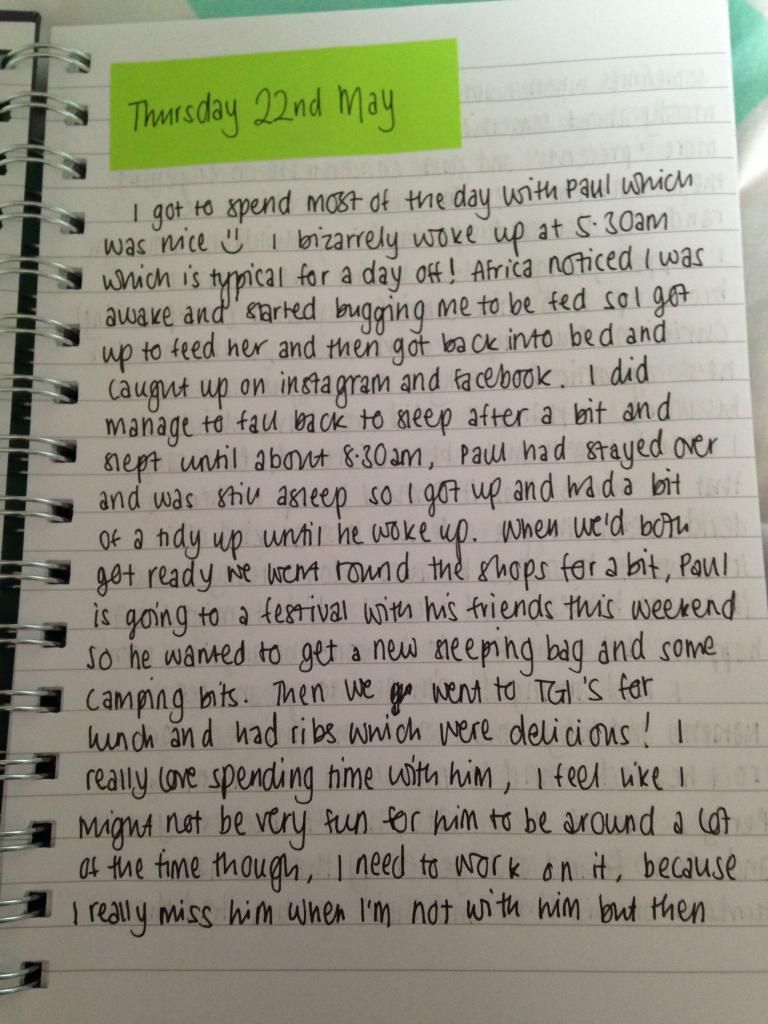 Thursday 22nd May
I got to spend most of the day with Paul which
was nice :) I bizarrely woke up at 5.30am
which is typical for a day off! Africa noticed I was
awake and started bugging me to be fed so I got
up to feed her and then got back into bed and
caught up on instagram and facebook. I did
manage to fall back to sleep after a bit and
slept until about 8.30am, Paul had stayed over
and was still asleep so I got up and had a bit
of a tidy up until he woke up. When we'd both
got ready we went round the shops for a bit, Paul
is going to a festival with his friends this weekend
so he wanted to get a new sleeping bag and some
camping bits. Then we went to TGI'S for
lunch and had ribs which were delicious! I
really love spending time with him, I feel like I
might not be very fun for him to be around a lot
of the time though, I need to work on it, because
I really miss him when I'm not with him but then